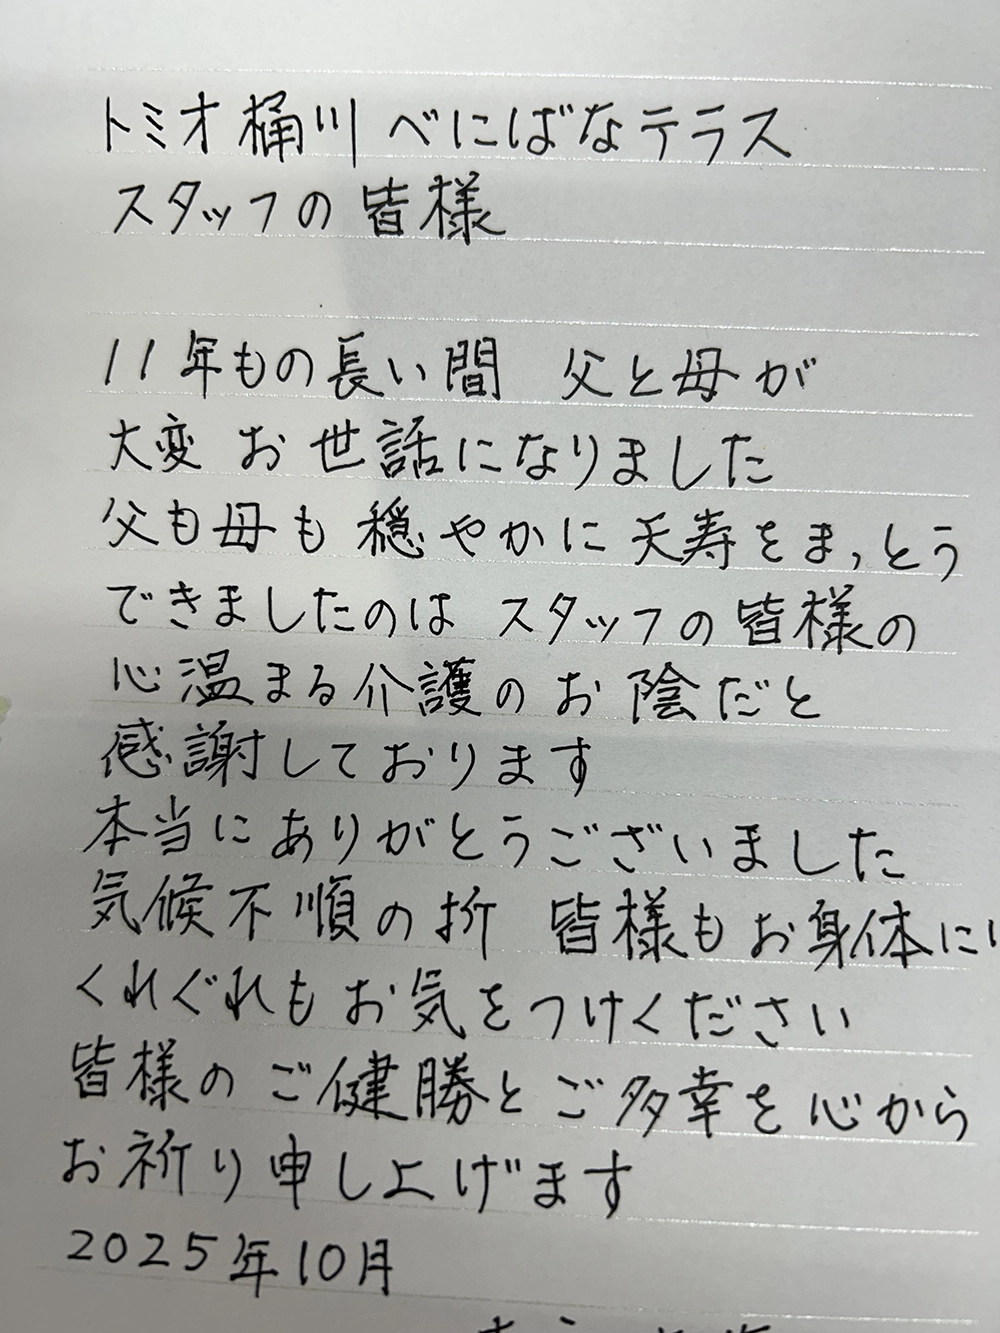 トミオ桶川 べにばなテラス
スタッフの皆様
11年もの長い間 父と母が
大変お世話になりました
父も母も穏やかに天寿をまっとう
できましたのは スタッフの皆様の
心温まる介護のお陰だと
感謝しております
本当にありがとうございました
気候不順の折 皆様もお身体に
くれぐれもお気をつけください
皆様のご健勝とご多幸を心から
お祈り申し上げます
2025年10月